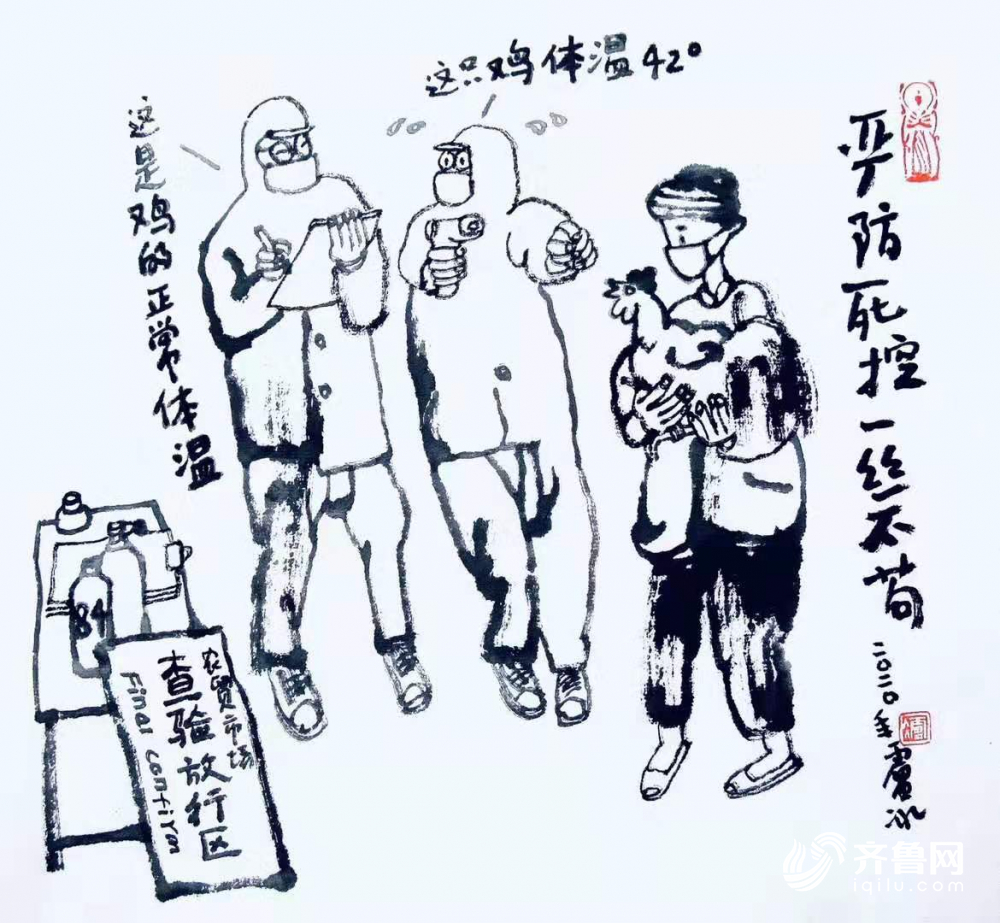 这只鸡体温42°
这是鸡的正常体温
严防死控一丝不苟
二〇二〇年
84
农贸市场
查验放行区
Final confirm
齐鲁网
iqilu.com